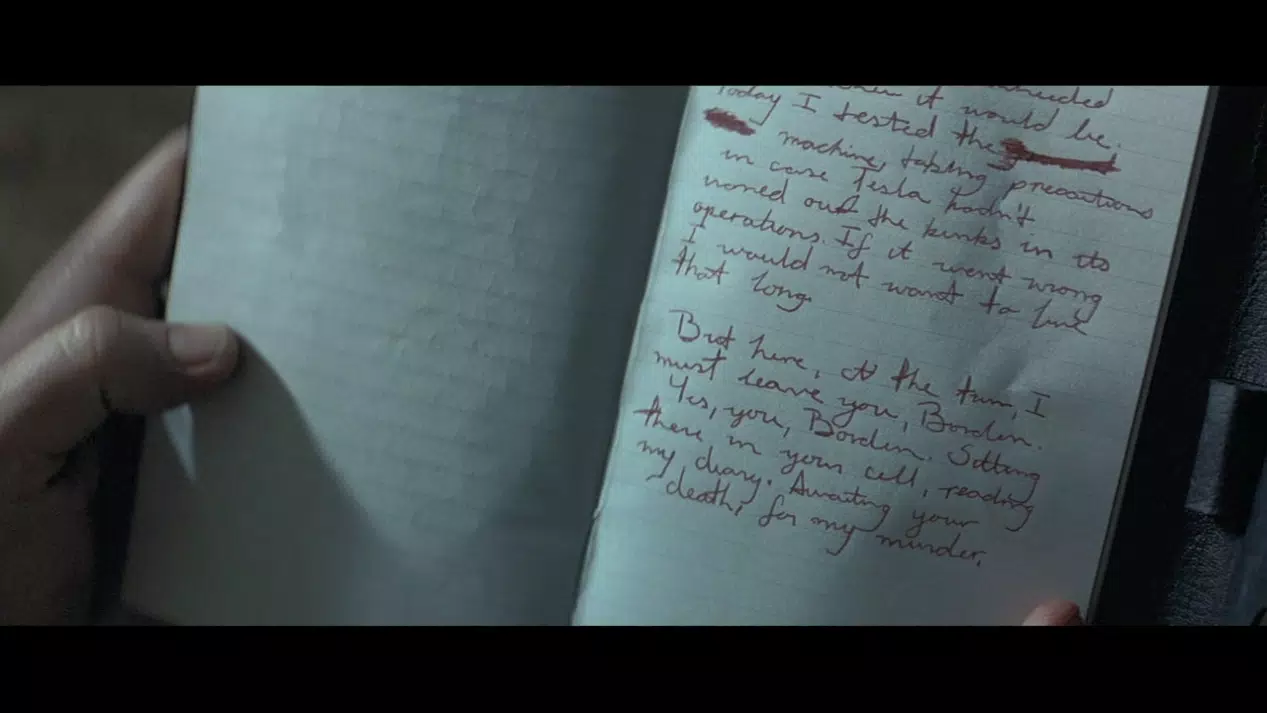 it would be.
Today I tested the
machine, taking precautions
in case Tesla hadn't
out the kinks in its
operations. If it went wrong
I would not want to live
that long.
But here, at the turn, I
must leave you, Borden.
Yes, you, Borden. Sitting
there in your cell, reading
my diary. Awaiting your
death, for my murder.